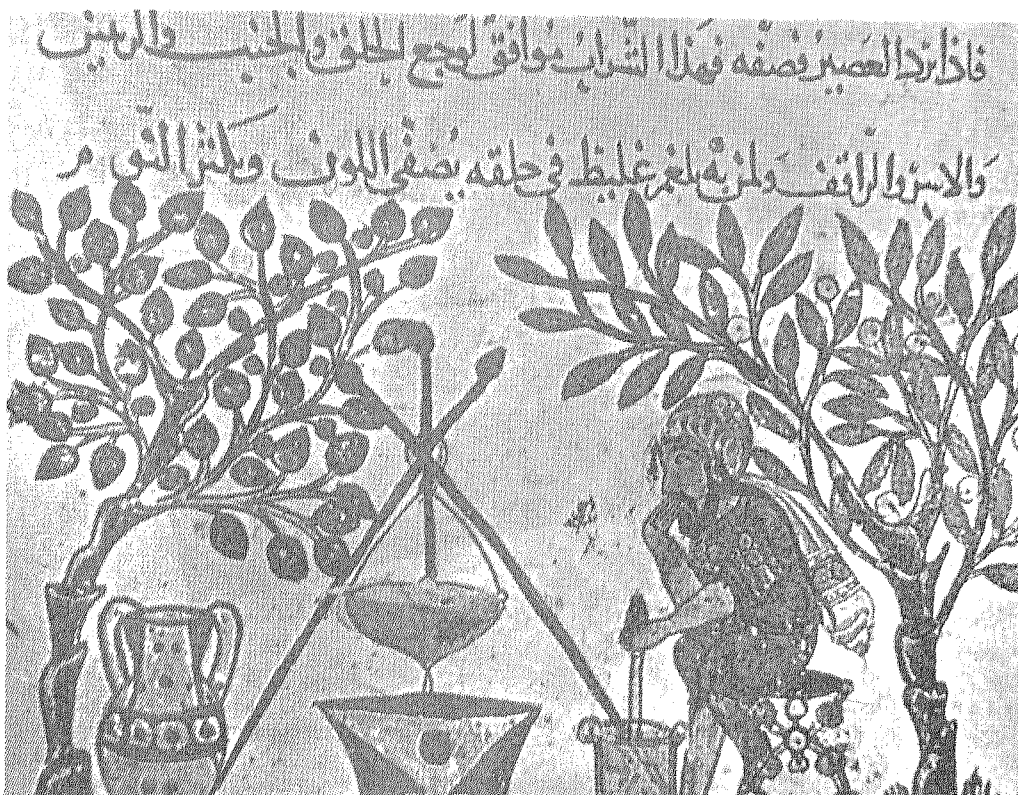 فاذا برد العصير فصفه فهذا الشراب موافق لوجع الحلق والجنب والرئتين
والاسر والراتف ولمن به بلغم غليظ في حلقه يصفي اللون ويكثر النوم